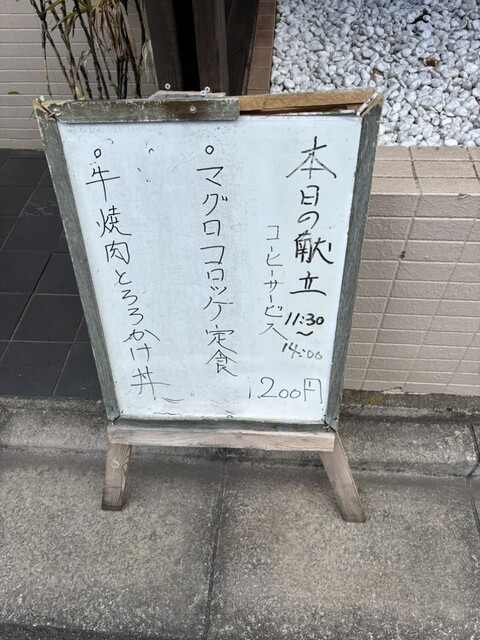 本日の献立
11:30
~
14:00
コーヒーサービス
1200円
○マグロコロッケ定食
○牛焼肉とろろかけ丼